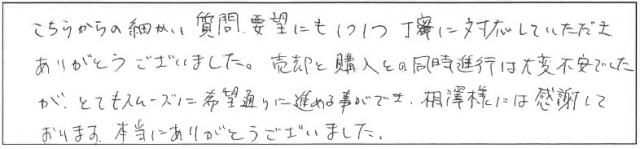 こちらからの細かい質問、要望にも1つ1つ丁寧に対応していただき
ありがとうございました。売却と購入との同時進行は大変不安でした
が、とてもスムーズに希望通りに進める事ができ、相澤様には感謝して
おります。本当にありがとうございました。